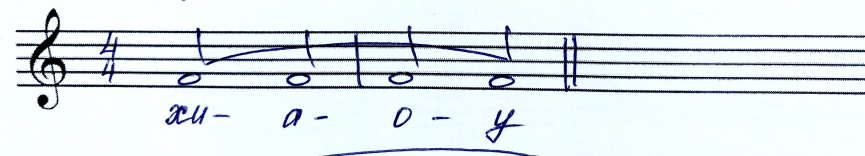 4
4
хи- а- о - у